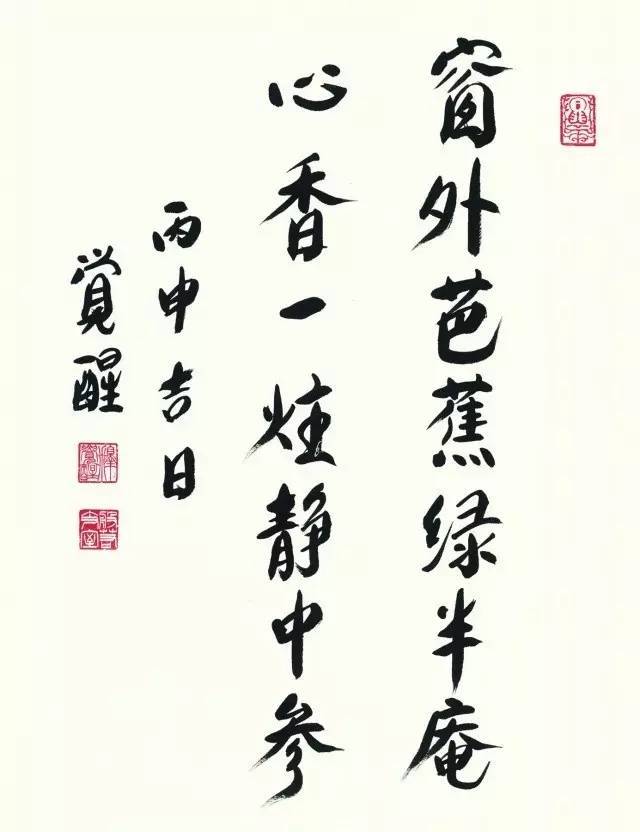 窗外芭蕉绿半庵
心香一炷静中参
丙申吉日
覺醒